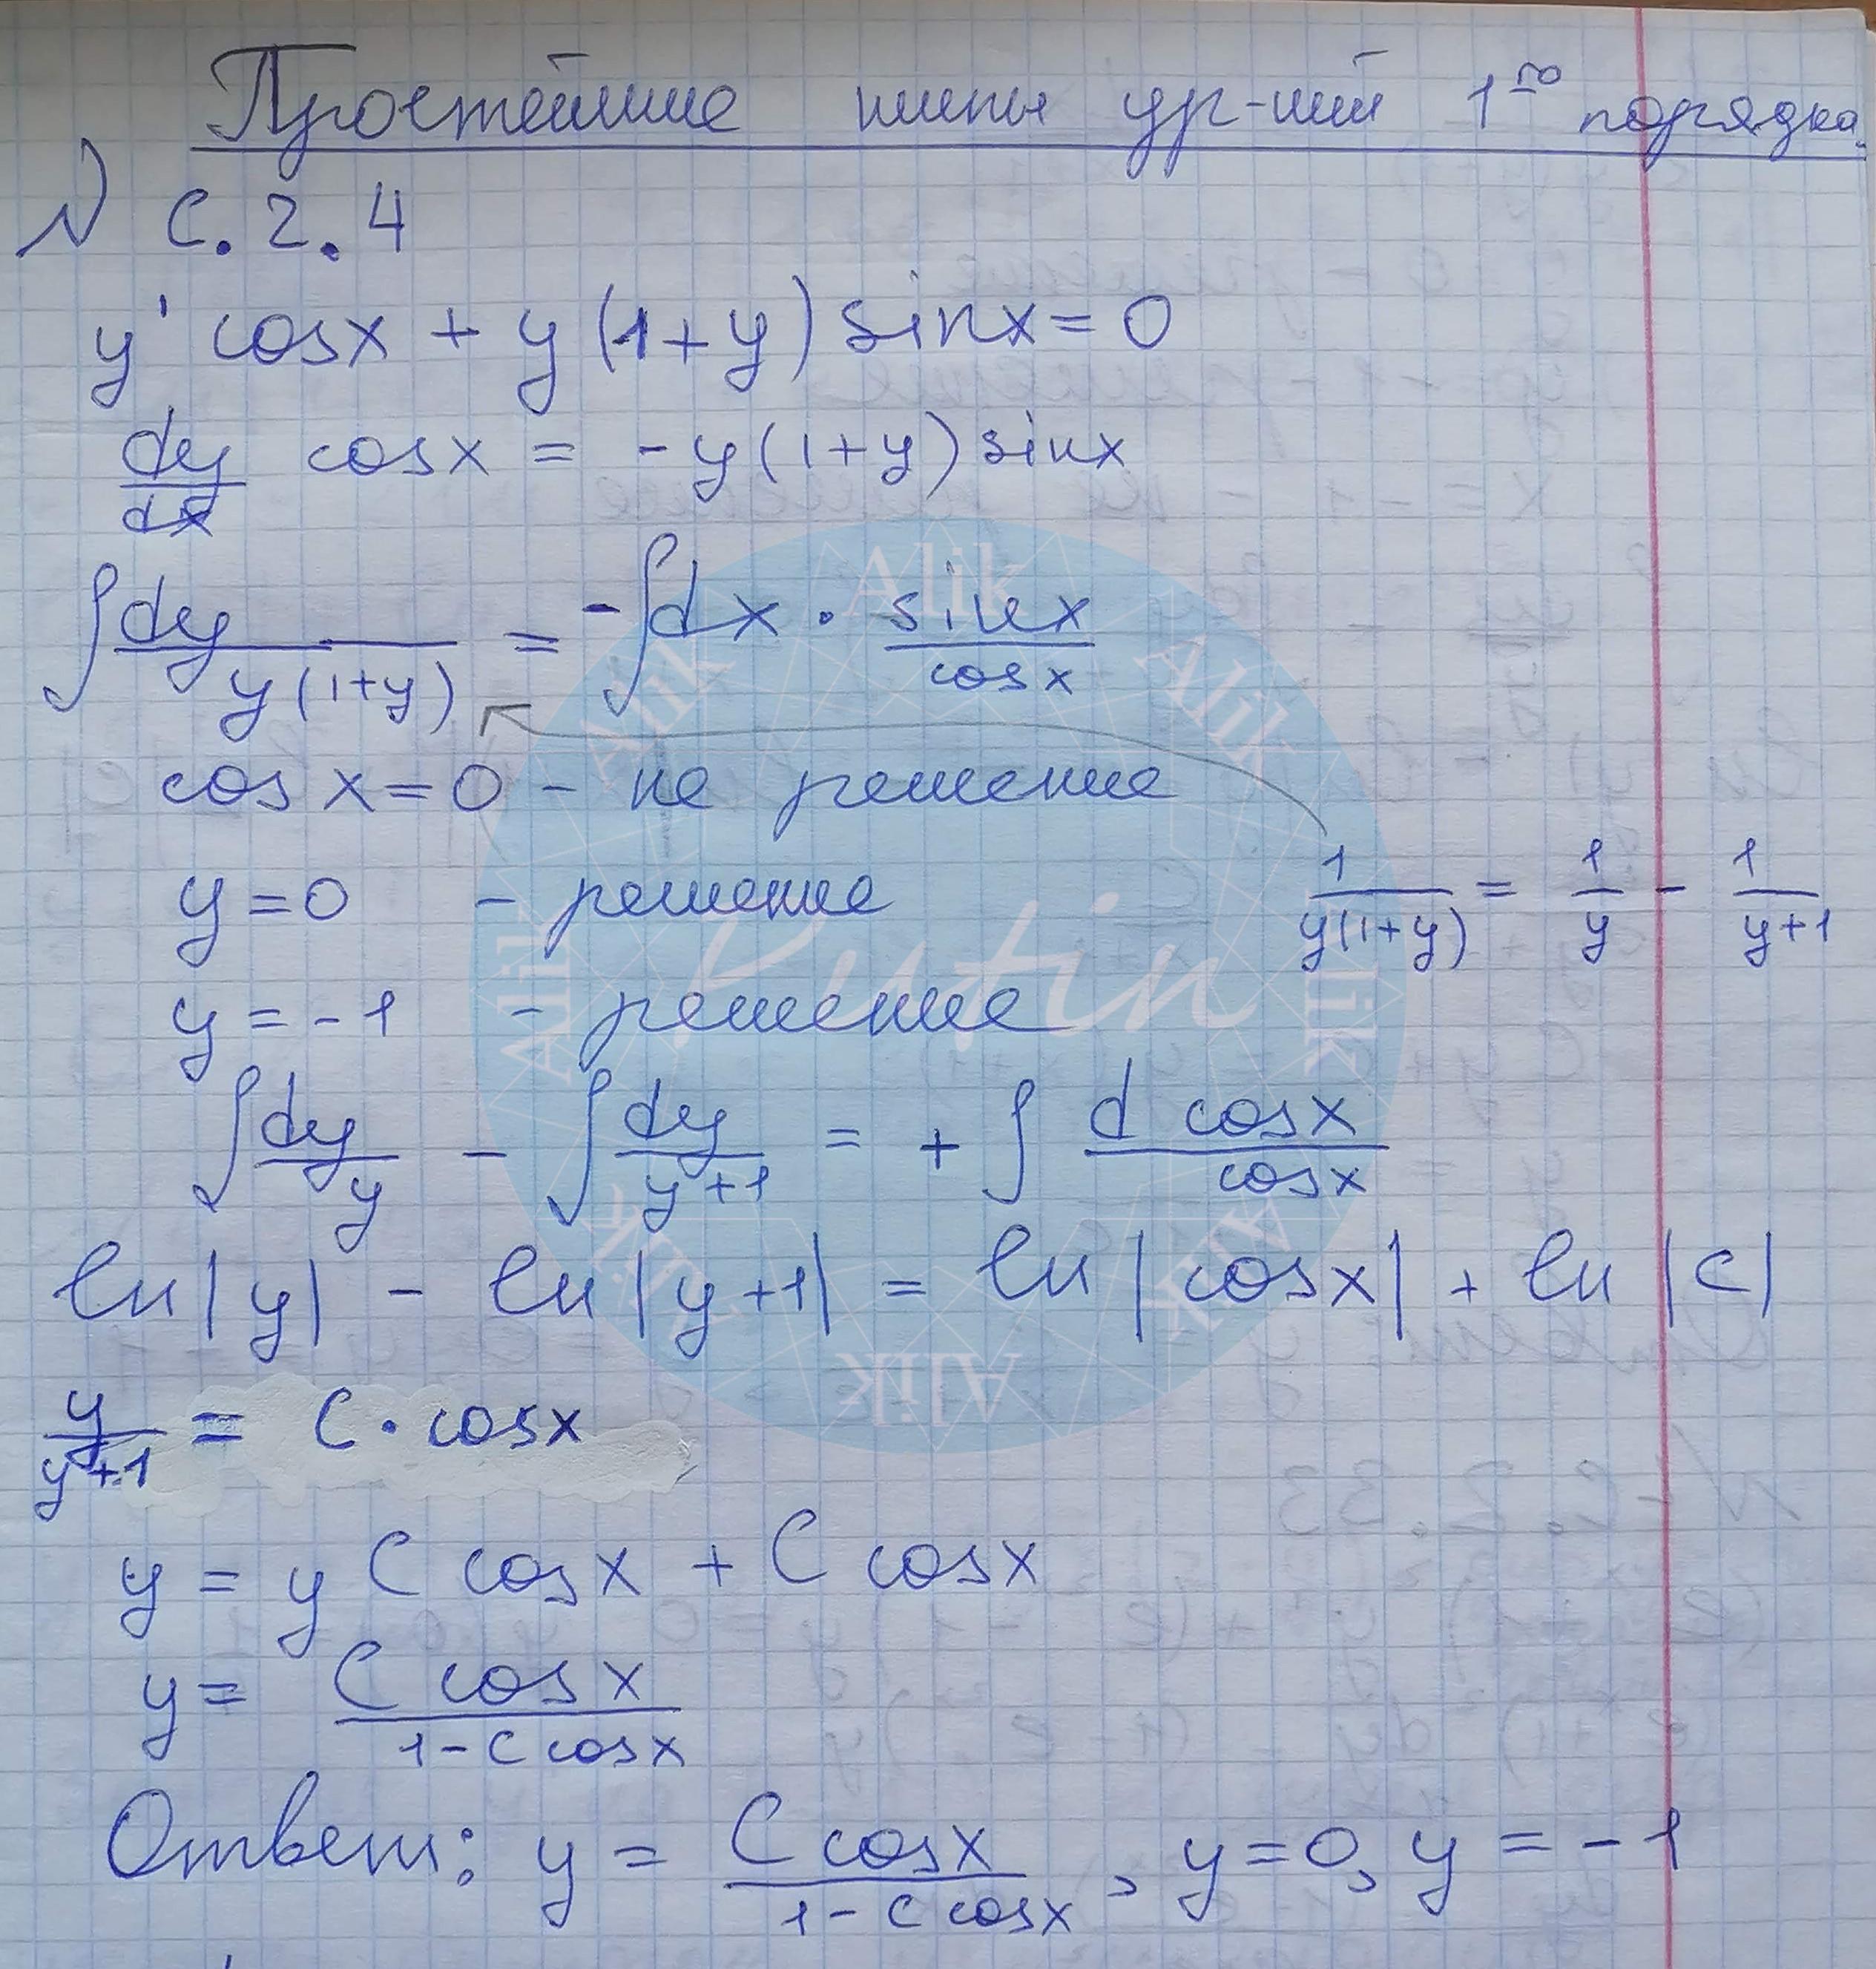 Простейшие типы ур-ний 1го порядка.
№ С.2.4
y' cosx + y(1+y) sinx = 0
dy/dx cosx = -y(1+y) sinx
∫ dy/y(1+y) = -∫ dx · sinx/cosx
cosx = 0 - не решение
y = 0 - решение
1/y(1+y) = 1/y - 1/y+1
y = -1 - решение
∫ dy/y - ∫ dy/y+1 = + ∫ d cosx/cosx
ln|y| - ln|y+1| = ln|cosx| + ln|C|
y/y+1 = C · cosx
y = y C cosx + C cosx
y = C cosx/1 - C cosx
Ответ: y = C cosx/1 - C cosx, y = 0, y = -1
Alik
Alik
Alik
Alik
Alik
Alik
Alik
Alik
Kutin